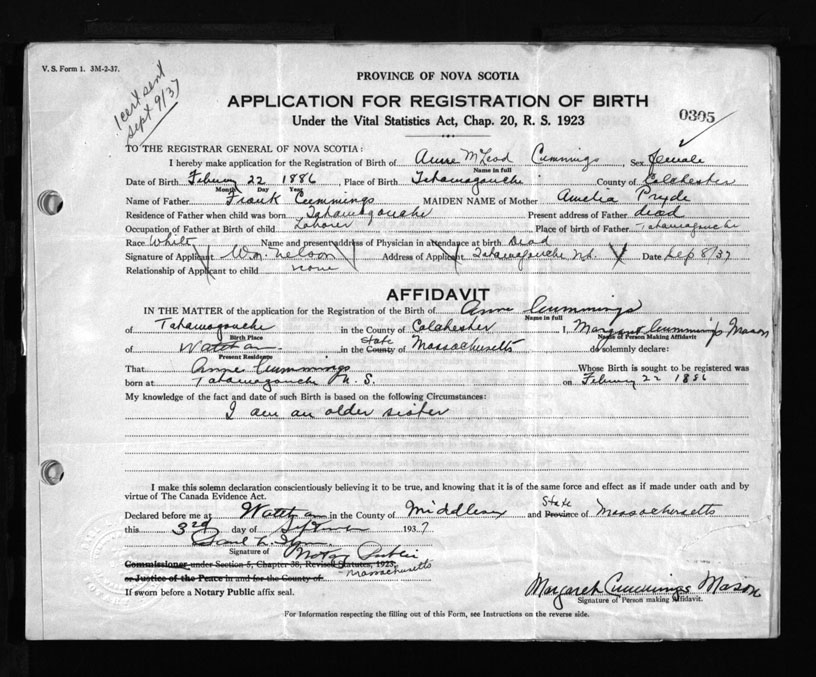 V. S. Form 1. 3M-2-37.
1 cert sent
Sept 9/37
PROVINCE OF NOVA SCOTIA
APPLICATION FOR REGISTRATION OF BIRTH
Under the Vital Statistics Act, Chap. 20, R. S. 1923
0305
TO THE REGISTRAR GENERAL OF NOVA SCOTIA:
I hereby make application for the Registration of Birth of Anne McLeod Cummings Sex Female
Name in full
Date of Birth Februy 22 1886, Place of Birth Tatamagouche County of Colchester
Month Day Year
Name of Father Frank Cummings MAIDEN NAME of Mother Amelia Pryde
Residence of Father when child was born Tatamagouche Present address of Father dead
Occupation of Father at Birth of child Laborer Place of birth of Father Tatamagouche
Race White Name and present address of Physician in attendance at birth Dead
Signature of Applicant Wm. Nelson Address of Applicant Tatamagouche N.S. Date Sep 8/37
Relationship of Applicant to child none
AFFIDAVIT
IN THE MATTER of the application for the Registration of the Birth of Anne Cummings
Name in full
of Tatamagouche in the County of Colchester I, Margaret Cummings Mason
Birth Place Name of Person Making Affidavit
of in the County State of Massachusetts do solemnly declare:
Present Residence
That Anne Cummings Whose Birth is sought to be registered was
born at Tatamagouche N. S. on Februy 22 1886
My knowledge of the fact and date of such Birth is based on the following Circumstances:
I am an older sister
I make this solemn declaration conscientiously believing it to be true, and knowing that it is of the same force and effect as if made under oath and by
virtue of The Canada Evidence Act.
Declared before me at in the County of Middlesex and Province State of Massachusetts
this 3rd day of 1937
Signature of Notary Public
Commissioner under Section 5, Chapter 38, Revised Statutes, 1923,
or Justice of the Peace in and for the County of Massachusetts
If sworn before a Notary Public affix seal.
Margaret Cummings Mason
Signature of Person making Affidavit.
For Information respecting the filling out of this Form, see Instructions on the reverse side.